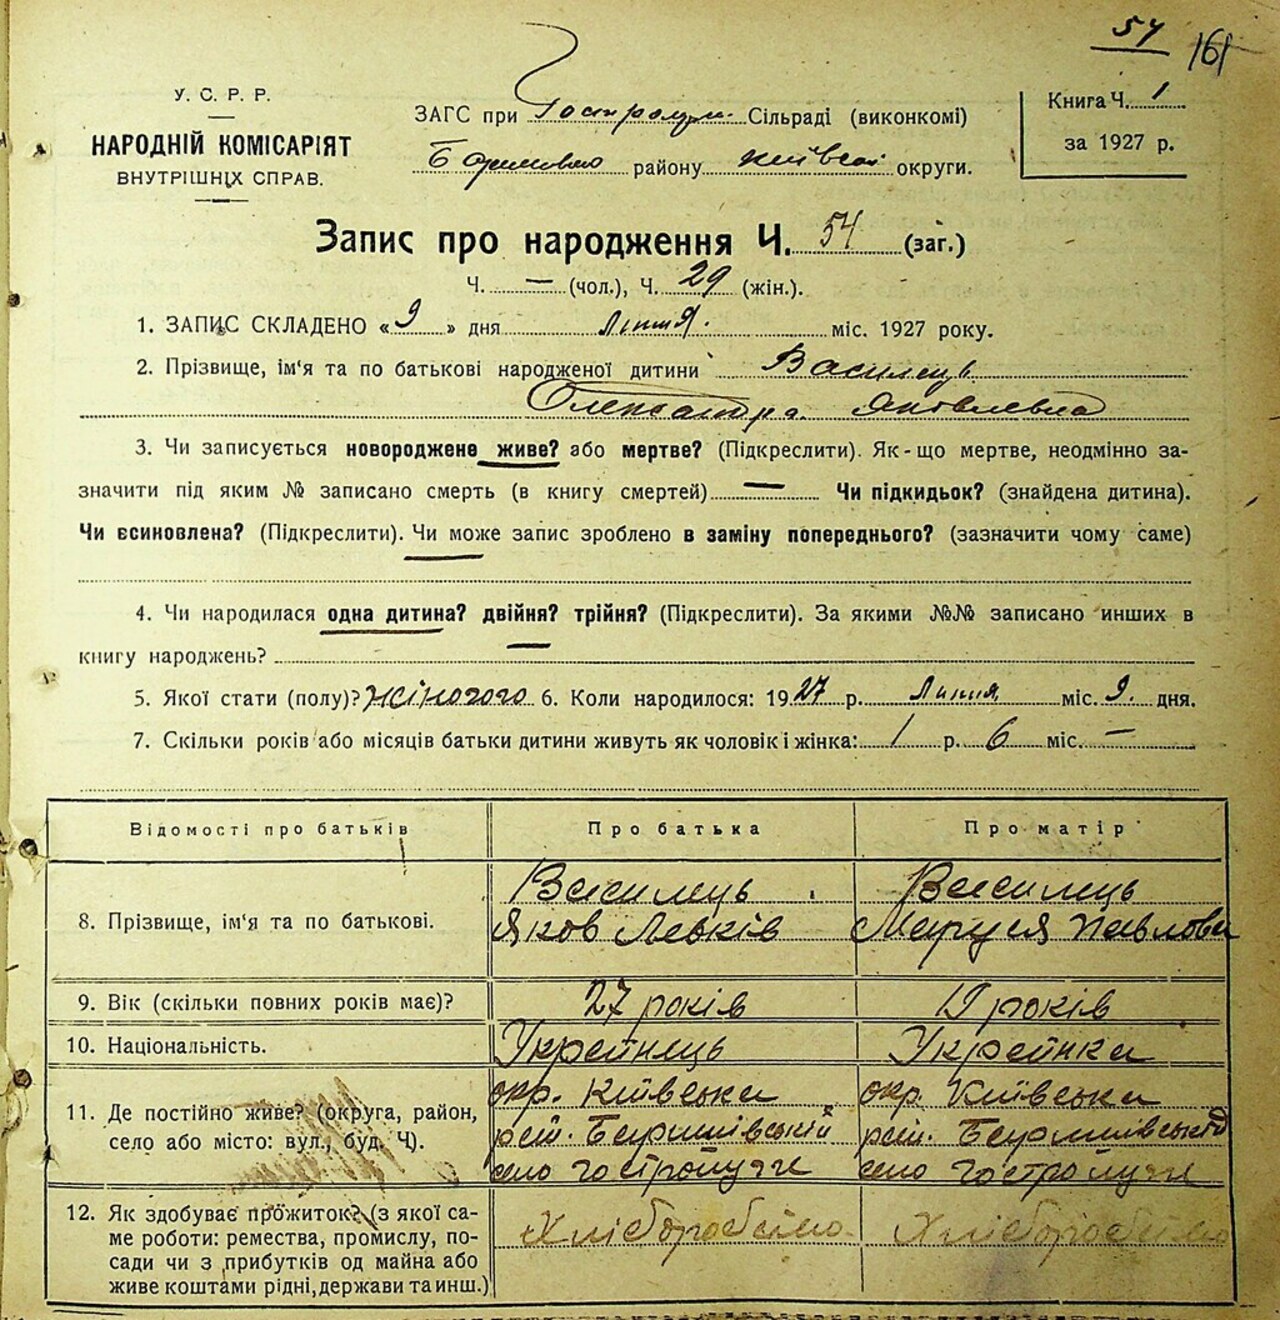 54
161
У. С. Р. Р.
НАРОДНІЙ КОМІСАРІЯТ
ВНУТРІШНІХ СПРАВ.
ЗАГС при Гостролуц. Сільраді (виконкомі)
району Київськ округи.
Книга Ч. 1
за 1927 р.
Запис про народження Ч. 54 (заг.)
Ч. — (чол.), Ч. 29 (жін.).
1. ЗАПИС СКЛАДЕНО «9» дня Липня. міс. 1927 року.
2. Прізвище, ім‘я та по батькові народженої дитини Василець
Олександра Яковлевна
3. Чи записується новороджене живе? або мертве? (Підкреслити). Як-що мертве, неодмінно за-
значити під яким № записано смерть (в книгу смертей) — Чи підкидьок? (знайдена дитина).
Чи єсиновлена? (Підкреслити). Чи може запис зроблено в заміну попереднього? (зазначити чому саме)
4. Чи народилася одна дитина? двійня? трійня? (Підкреслити). За якими №№ записано инших в
книгу народжень?
5. Якої стати (полу)? Жіночого 6. Коли народилося: 1927 р. Липня міс. 9. дня.
7. Скільки років або місяців батьки дитини живуть як чоловік і жінка: 1 р. 6 міс. —
Відомості про батьків Про батька Про матір
8. Прізвище, ім‘я та по батькові. Василець Василець
Яков Левків Маруся Павлова
9. Вік (скільки повних років має)? 27 років 19 років
10. Національність. Украйнець Украйнка
11. Де постійно живе? (округа, район, окр. Київська окр. Київська
село або місто: вул., буд. Ч). рай. Баришівській рай. Баришівській
село Гостролуччє село Гостролуччє
12. Як здобуває прожиток? (з якої са- Хліборобство Хліборобство
ме роботи: ремества, промислу, по-
сади чи з прибутків од майна або
живе коштами рідні, держави та инш.)